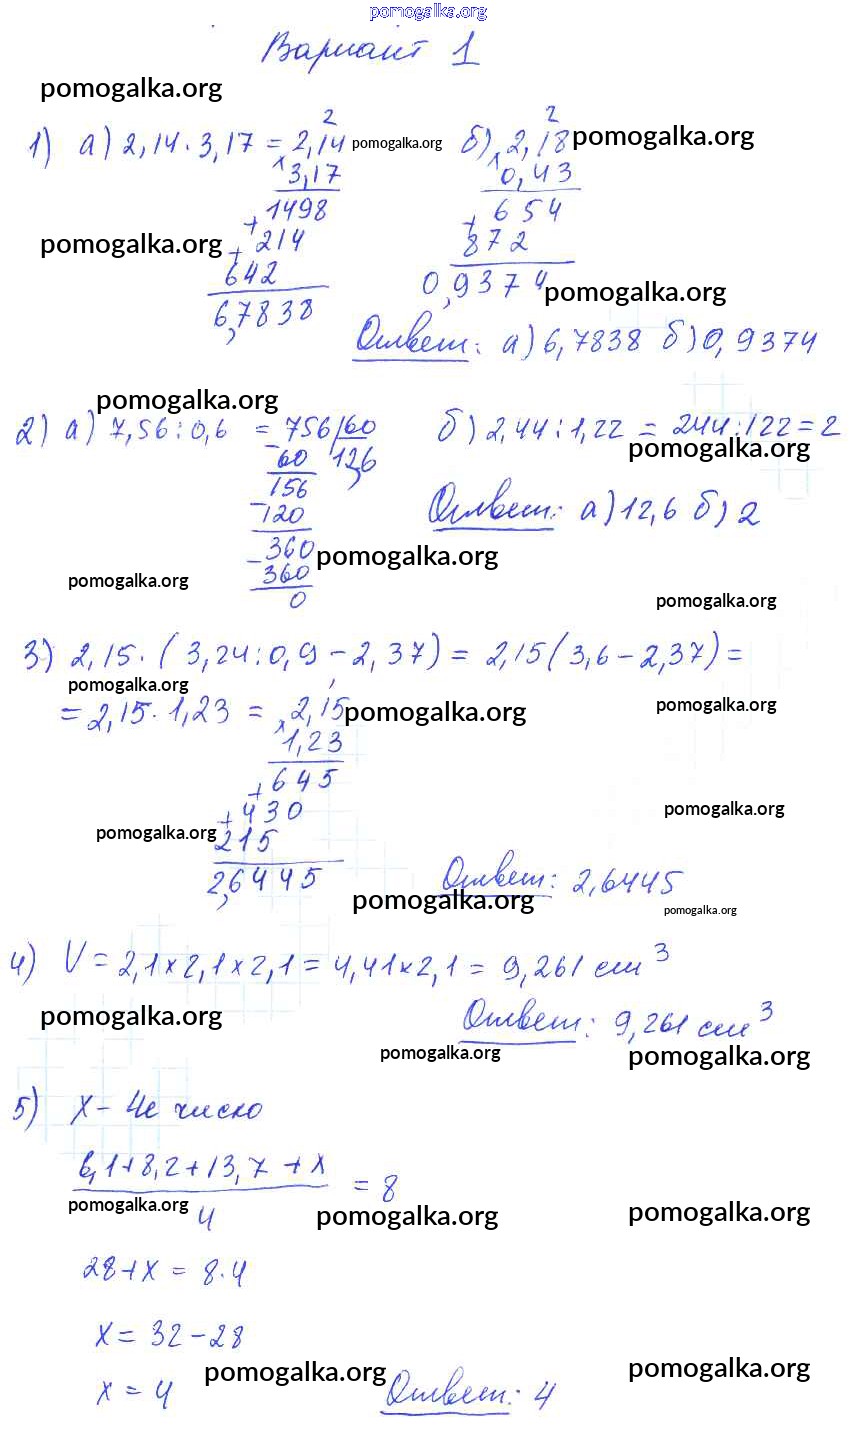 pomogalka.org
Вариант 1
pomogalka.org
1) а) 2,14 · 3,17 = 2,14 pomogalka.org б) 2,18 pomogalka.org
2 2
× 3,17 × 0,43
+ 1498 + 654
pomogalka.org + 214 872
642 0,9374 pomogalka.org
6,7838
Ответ: а) 6,7838 б) 0,9374
pomogalka.org
2) а) 7,56 : 0,6 = 756 | 60 б) 2,44 : 1,22 = 244 : 122 = 2
- 60 12,6 pomogalka.org
156
- 120 Ответ: а) 12,6 б) 2
- 360 pomogalka.org
360
pomogalka.org 0 pomogalka.org
3) 2,15 · (3,24 : 0,9 - 2,37) = 2,15 (3,6 - 2,37) =
pomogalka.org
= 2,15 · 1,23 = 2,15 pomogalka.org pomogalka.org
× 1,23
+ 645
+ 430 pomogalka.org
pomogalka.org 215
2,6445 Ответ: 2,6445
pomogalka.org pomogalka.org
4) V = 2,1 × 2,1 × 2,1 = 4,41 × 2,1 = 9,261 см³
pomogalka.org Ответ: 9,261 см³
pomogalka.org pomogalka.org
5) x - 4е число
6,1 + 8,2 + 13,7 + x
= 8
pomogalka.org 4 pomogalka.org pomogalka.org
28 + x = 8 · 4
x = 32 - 28
pomogalka.org pomogalka.org
x = 4 Ответ: 4